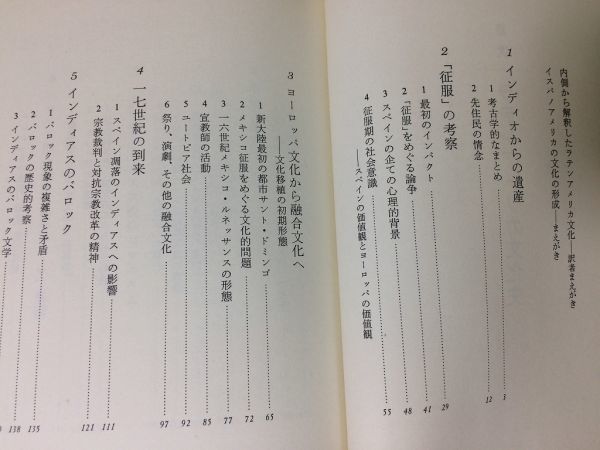 内側から解釈したラテンアメリカ文化──訳者まえがき
イスパノアメリカの文化の形成──まえがき
1 インディオからの遺産
1 考古学的なまとめ……3
2 先住民の情念……12
2 「征服」の考察
1 最初のインパクト……29
2 「征服」をめぐる論争……41
3 スペインの企ての心理的背景……48
4 征服期の社会意識……55
──スペインの価値観とヨーロッパの価値観
3 ヨーロッパ文化から融合文化へ
──文化移植の初期形態
1 新大陸最初の都市サント・ドミンゴ……65
2 メキシコ征服をめぐる文化的問題……72
3 一六世紀メキシコ・ルネッサンスの形態……77
4 宣教師の活動……85
5 ユートピア社会……92
6 祭り、演劇、その他の融合文化……97
4 一七世紀の到来
1 スペイン凋落のインディアスへの影響……111
2 宗教裁判と対抗宗教改革の精神……121
5 インディアスのバロック
1 バロック現象の複雑さと矛盾……
2 バロックの歴史的考察……135
3 インディアスのバロック文学……138